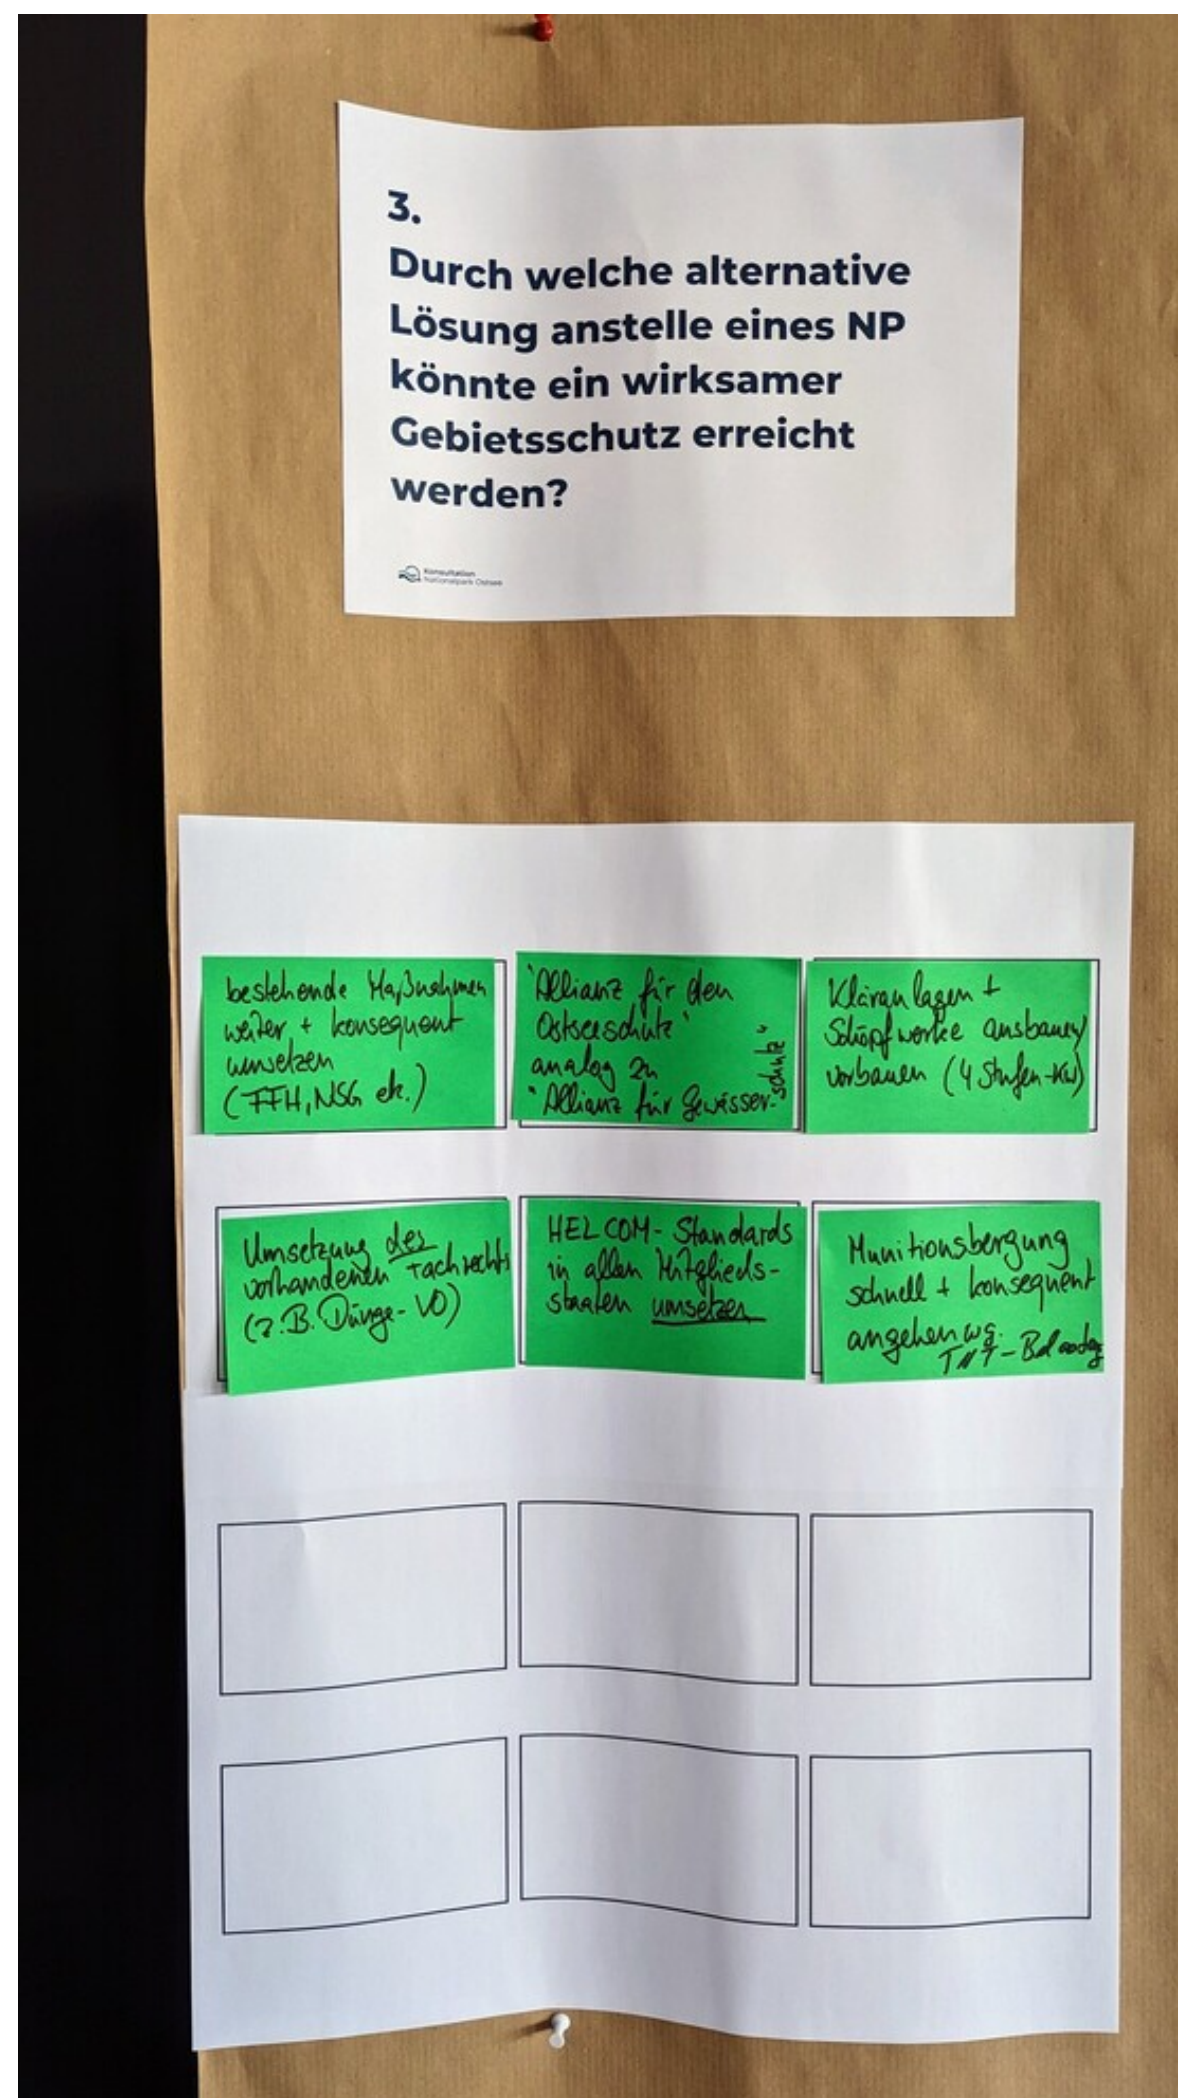 3.
Durch welche alternative
Lösung anstelle eines NP
könnte ein wirksamer
Gebietsschutz erreicht
werden?
Konsultation
Nationalpark Ostsee
bestehende Maßnahmen
weiter + konsequent
umsetzen
(FFH, NSG etc.)
"Allianz für den
Ostseeschutz"
analog zu
"Allianz für Gewässer-
schutz"
Kläranlagen +
Schöpfwerke ausbauen/
vorbauen (4 Stufen-KW)
Umsetzung des
vorhandenen Fachrechts
(z.B. Dünge-VO)
HELCOM-Standards
in allen Mitglieds-
staaten umsetzen
Munitionsbergung
schnell + konsequent
angehen wg.
TNT-